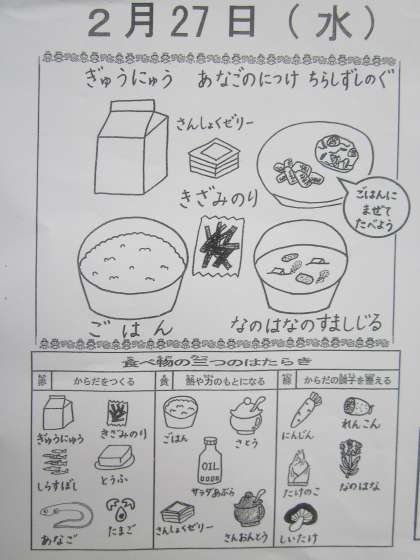 2月27日(水)
ぎゅうにゅう あなごのにつけ ちらしずしのぐ
さんしょくゼリー
きざみのり
ごはんに
まぜて
たべよう
ごはん なのはなのすましじる
食べ物の三つのはたらき
赤 からだをつくる 黄 熱や力のもとになる 緑 からだの調子を整える
ぎゅうにゅう きざみのり ごはん さとう にんじん れんこん
しらすぼし とうふ OIL サラダあぶら たけのこ なのはな
あなご たまご さんしょくゼリー さんおんとう しいたけ